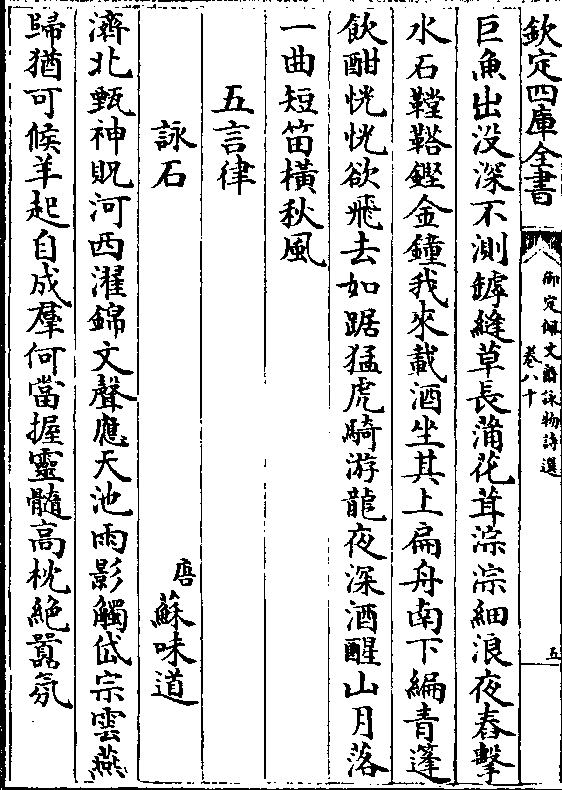 欽定四庫全書
御定佩文齋詠物詩選
卷八十
五
巨魚出没深不測罅縫草長蒲花茸淙淙細浪夜舂擊
水石鞺鞳鏗金鐘我來載酒坐其上扁舟南下編青蓬
飲酣恍恍欲飛去如踞猛虎騎游龍夜深酒醒山月落
一曲短笛橫秋風
五言律
詠石
唐蘇味道
濟北甄神貺河西濯錦文聲應天池雨影觸岱宗雲燕
歸猶可候羊起自成羣何當握靈髓高枕絶囂氛